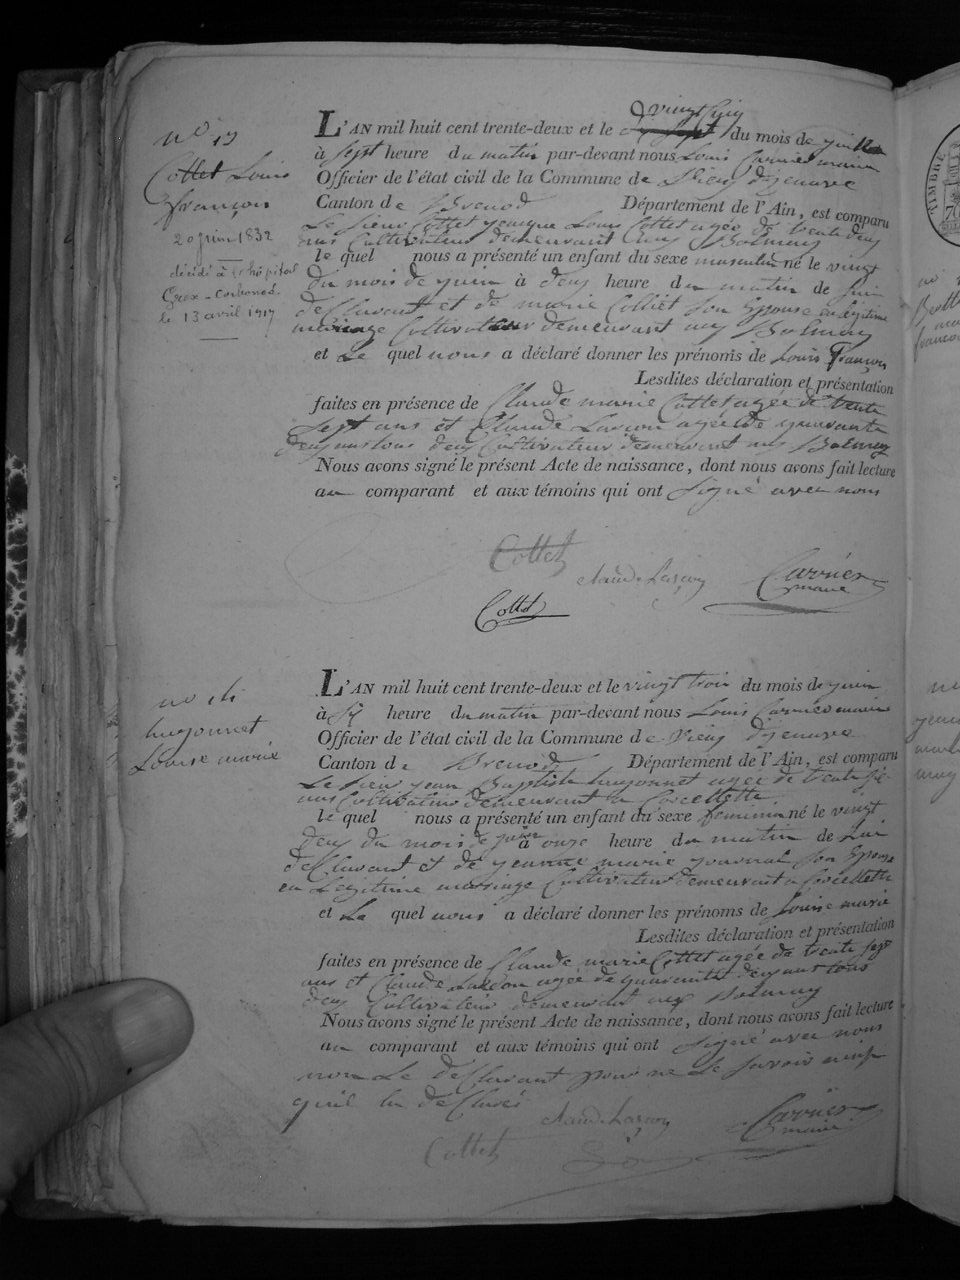 no 13
Collet Louis
françois
20 juin 1832
décédé à l'hôpital
Gex
le 13 avril 1917
L'AN mil huit cent trente-deux et le vingt cinq du mois de juin
à sept heure du matin par-devant nous Louis Carrier maire
Officier de l'état civil de la Commune de Vieu d'jzenave
Canton de Brenod Département de l'Ain, est comparu
Le sieur Collet Louis Collet agée de trente deux
ans Cultivateur demeurant aux Balmay
le quel nous a présenté un enfant du sexe masculin né le vingt
du mois de juin à deux heure du matin de lui
déClarant et de marie Colliet Son Epouse en légitime
mariage Cultivateur demeurant aux Balmay
et Le quel nous a déclaré donner les prénoms de Louis François
Lesdites déclaration et présentation
faites en présence de Claude marie Collet agée de trente
sept ans et Claude Larçon agée de quarante
deux ans tous deux Cultivateur demeurant aux Balmay
Nous avons signé le présent Acte de naissance, dont nous avons fait lecture
au comparant et aux témoins qui ont Signé avec nous
Collet
claude Larçon
Carrier
maire
Collet
no 14
hugonnet
Louise marie
L'AN mil huit cent trente-deux et le vingt trois du mois de juin
à Six heure du matin par-devant nous Louis Carrier maire
Officier de l'état civil de la Commune de Vieux d'jzenave
Canton de Brenod Département de l'Ain, est comparu
Le sieur jean Baptiste hugonnet agée de trente six
ans Cultivateur demeurant a Corcellette
le quel nous a présenté un enfant du sexe feminin né le vingt
deux du mois de juin à onze heure du matin de Lui
déClarant et de marie Son Epouse
en Légitime mariage Cultivateur demeurant a Corcellette
et La quel nous a déclaré donner les prénoms de Louise marie
Lesdites déclaration et présentation
faites en présence de Claude marie Collet agée de trente sept
ans et Claude Larçon agée de quarante deux ans tous
deux Cultivateur demeurant aux Balmay
Nous avons signé le présent Acte de naissance, dont nous avons fait lecture
au comparant et aux témoins qui ont Signé avec nous
non Le déClarant pour ne Le Savoir ainsi
qu'il la déClaré
claude Larçon
Carrier
maire
Collet
TIMBRE